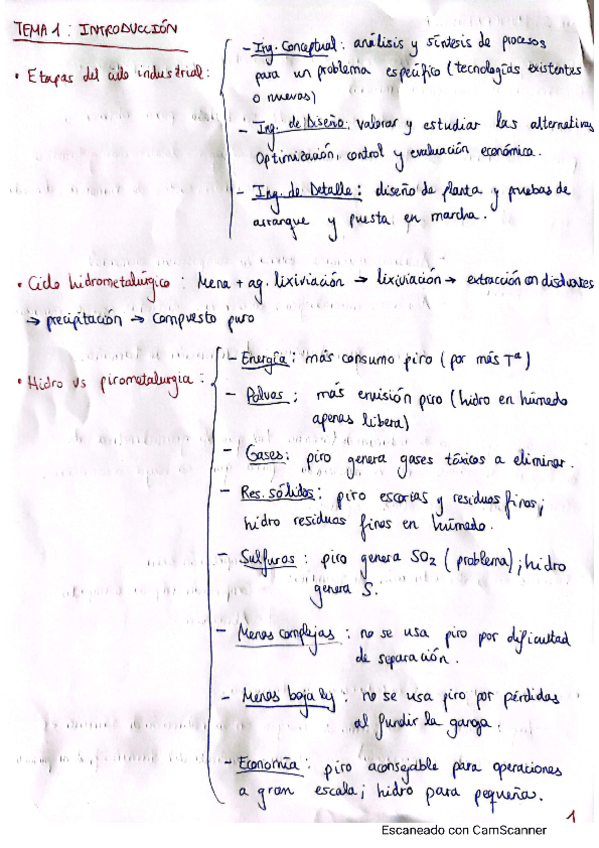 TEMA 1 : INTRODUCCIÓN
• Etapas del ciclo industrial:
- Ing. Conceptual : análisis y síntesis de procesos
para un problema específico (tecnologías existentes
o nuevas)
- Ing. de Diseño: valorar y estudiar las alternativas
Optimización, control y evaluación económica.
- Ing. de Detalle : diseño de planta y pruebas de
arranque y puesta en marcha.
• Ciclo hidrometalúrgico : Mena + ag. lixiviación → lixiviación → extracción con disolventes
→ precipitación → compuesto puro
• Hidro vs pirometalurgia :
- Energía : más consumo piro (por más Tª)
- Polvos : más emisión piro (hidro en húmedo
apenas libera)
- Gases : piro genera gases tóxicos a eliminar.
- Res. sólidos : piro escorias y residuos finos;
hidro residuos finos en húmedo.
- Sulfuros : piro genera SO2 (problema); hidro
genera S.
- Menas complejas : no se usa piro por dificultad
de separación.
- Menas baja ley : no se usa piro por pérdidas
al fundir la ganga.
- Economía : piro aconsejable para operaciones
a gran escala; hidro para pequeña.
1
Escaneado con CamScanner